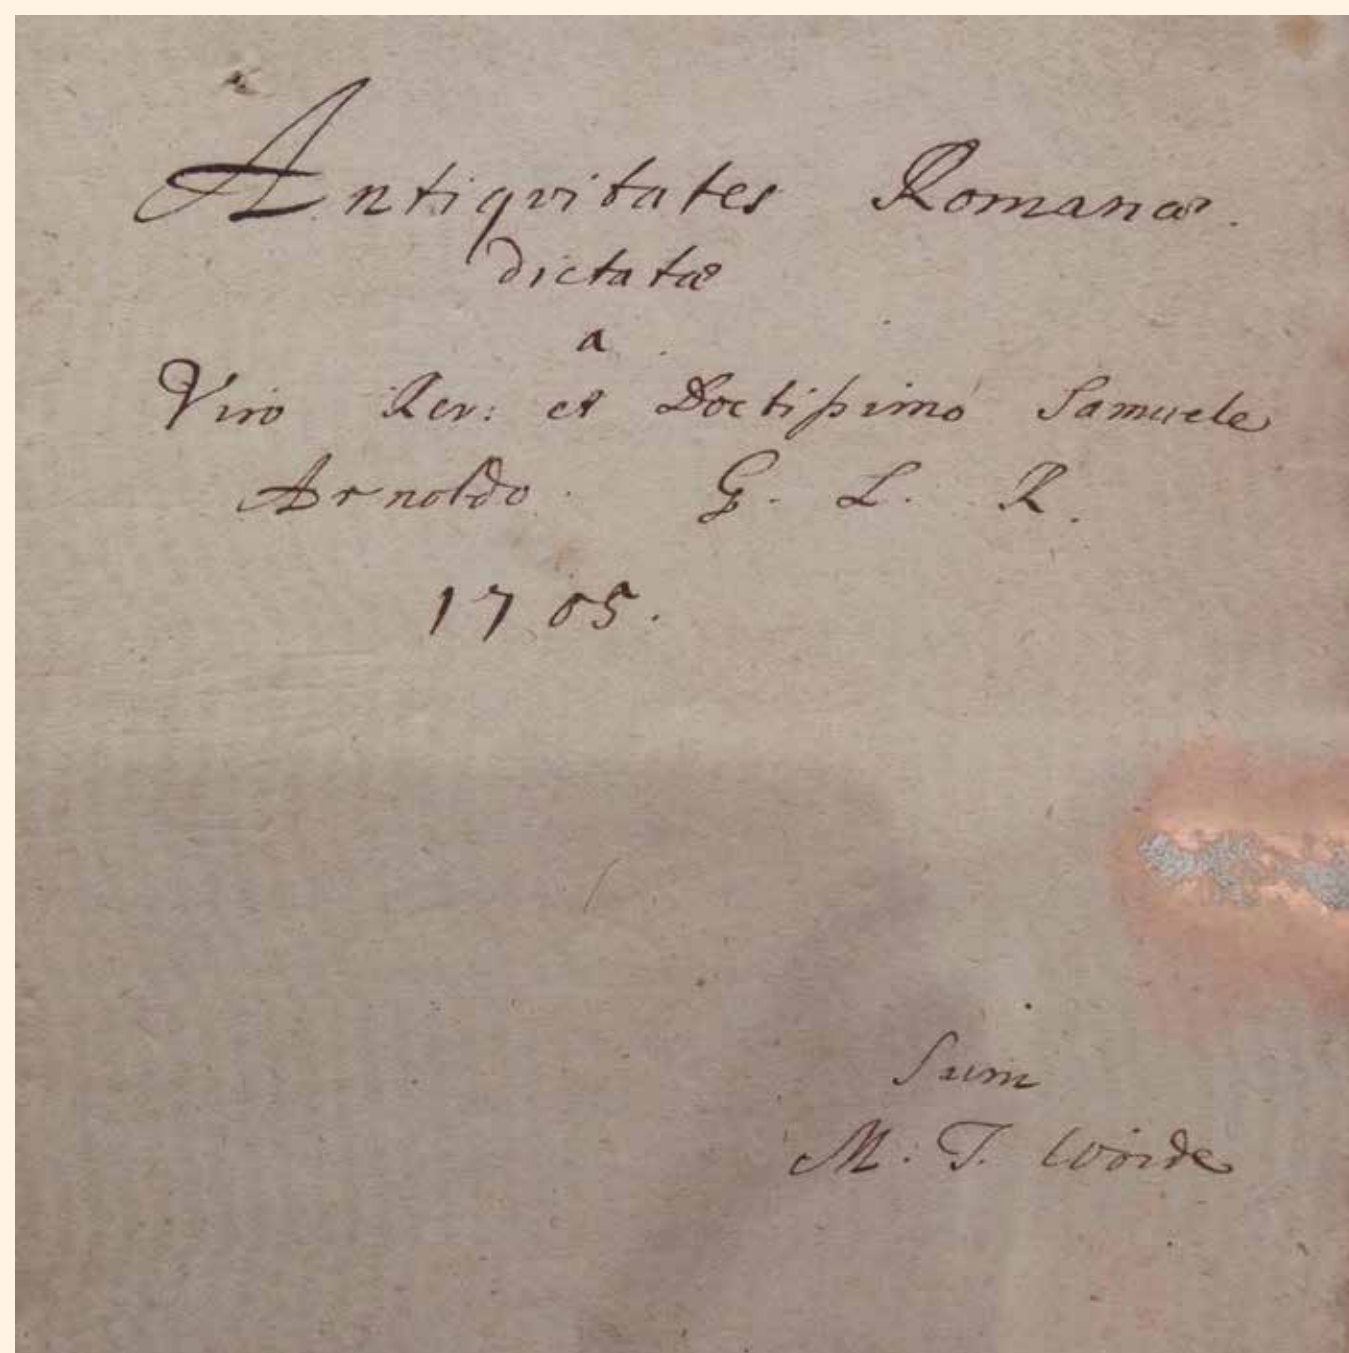 Antiqvitates Romanæ.
dictatæ
a
Viro Rev: et Doctißimo Samuele
Arnoldo. G. L. R.
1705.
Sum
M. T. Wöide